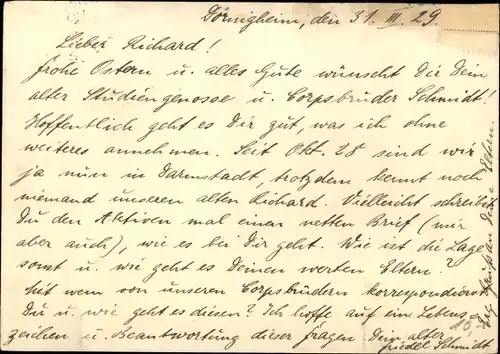 Dörnigheim, den 31. III. 29.
Lieber Richard!
Frohe Ostern u. alles Gute wünscht Dir Dein
alter Studiengenosse u. Corpsbruder Schmidt!
Hoffentlich geht es Dir gut, was ich ohne
weiteres annehmen. Seit Okt. 28 sind wir
ja nun in Darmstadt, trotzdem kennt noch
niemand unseren alten Richard. Vielleicht schreibst
Du den Aktiven mal einen netten Brief (mir
aber auch), wie es bei Dir geht. Wie ist die Lage
sonst u. wie geht es Deinen werten Eltern?
Mit wem von unseren Corpsbrüdern korrespondierst
Du u. wie geht es diesen? Ich hoffe auf ein Lebens-
zeichen u. Beantwortung dieser Fragen Dein alter
Friedel Schmidt
Eltern.